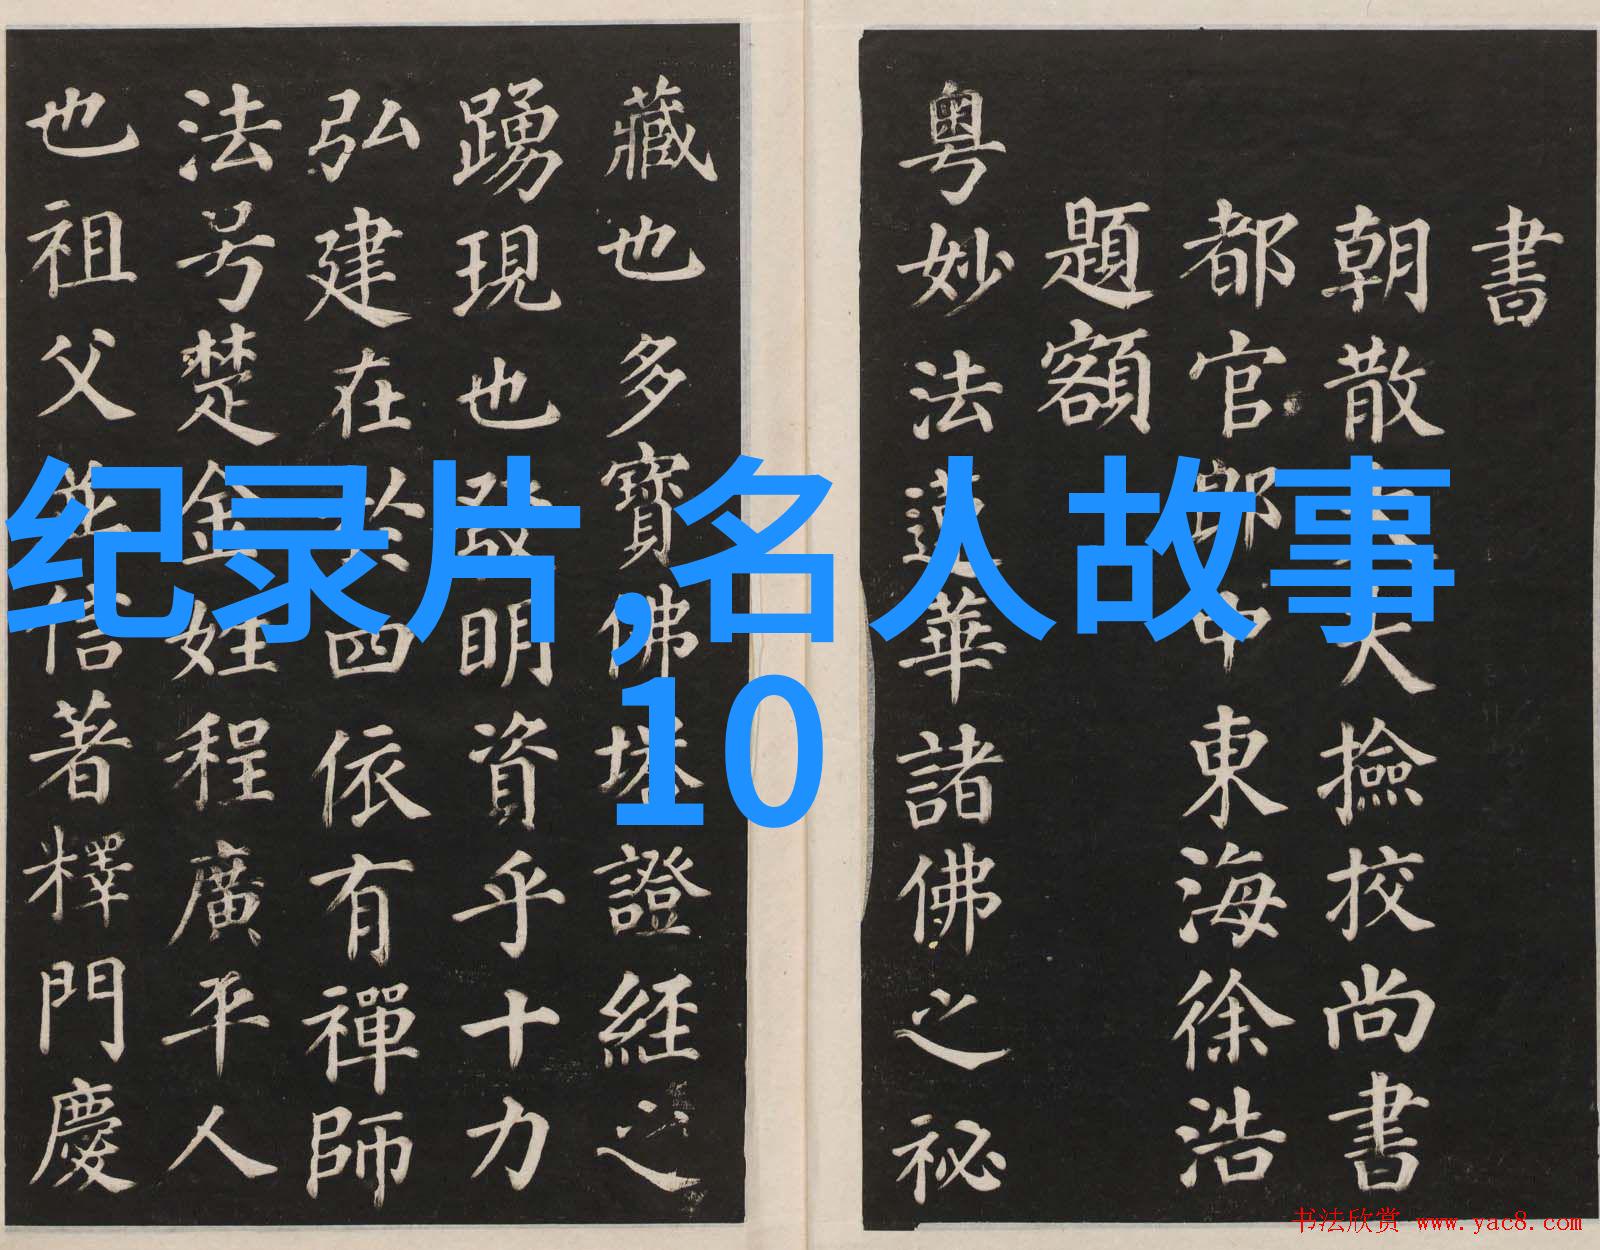 書
朝散大夫撿挍尚書
都官郎中東海徐浩
題額
粵妙法蓮華諸佛之祕
藏也多寶佛塔證經之
踴現也發明資乎十力
弘建在於四依有禪師
法号楚金姓程廣平人
也祖父並信著釋門慶
纪录片,名人故事
10
书法欣赏 www.yac8.com